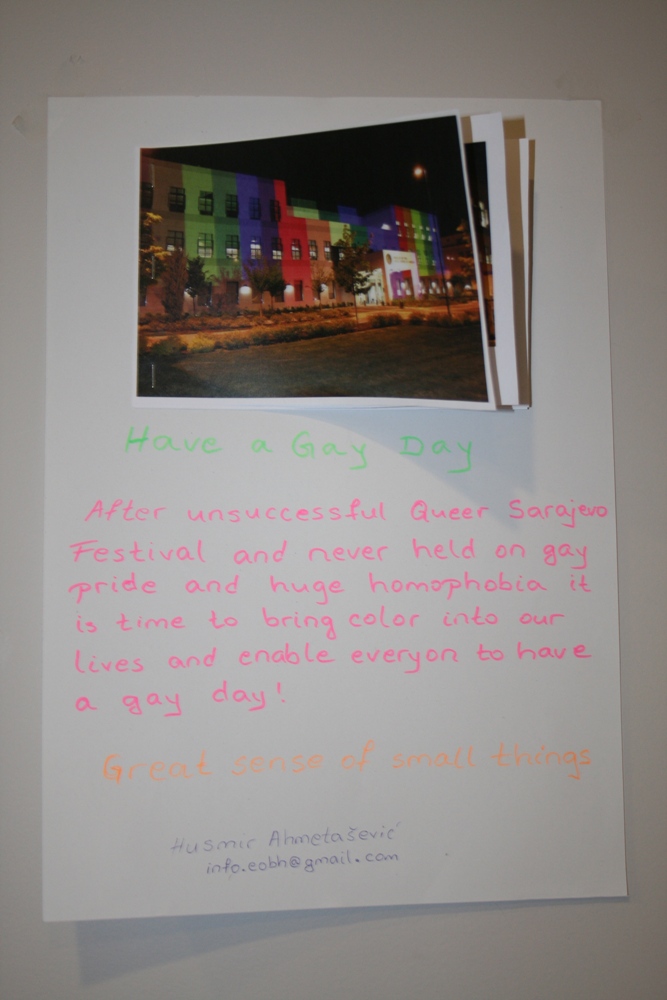 Have a Gay Day
After unsuccessful Queer Sarajevo
Festival and never held on gay
pride and huge homophobia it
is time to bring color into our
lives and enable everyon to have
a gay day!
Great sense of small things
Husmir Ahmetašević
info.eobh@gmail.com